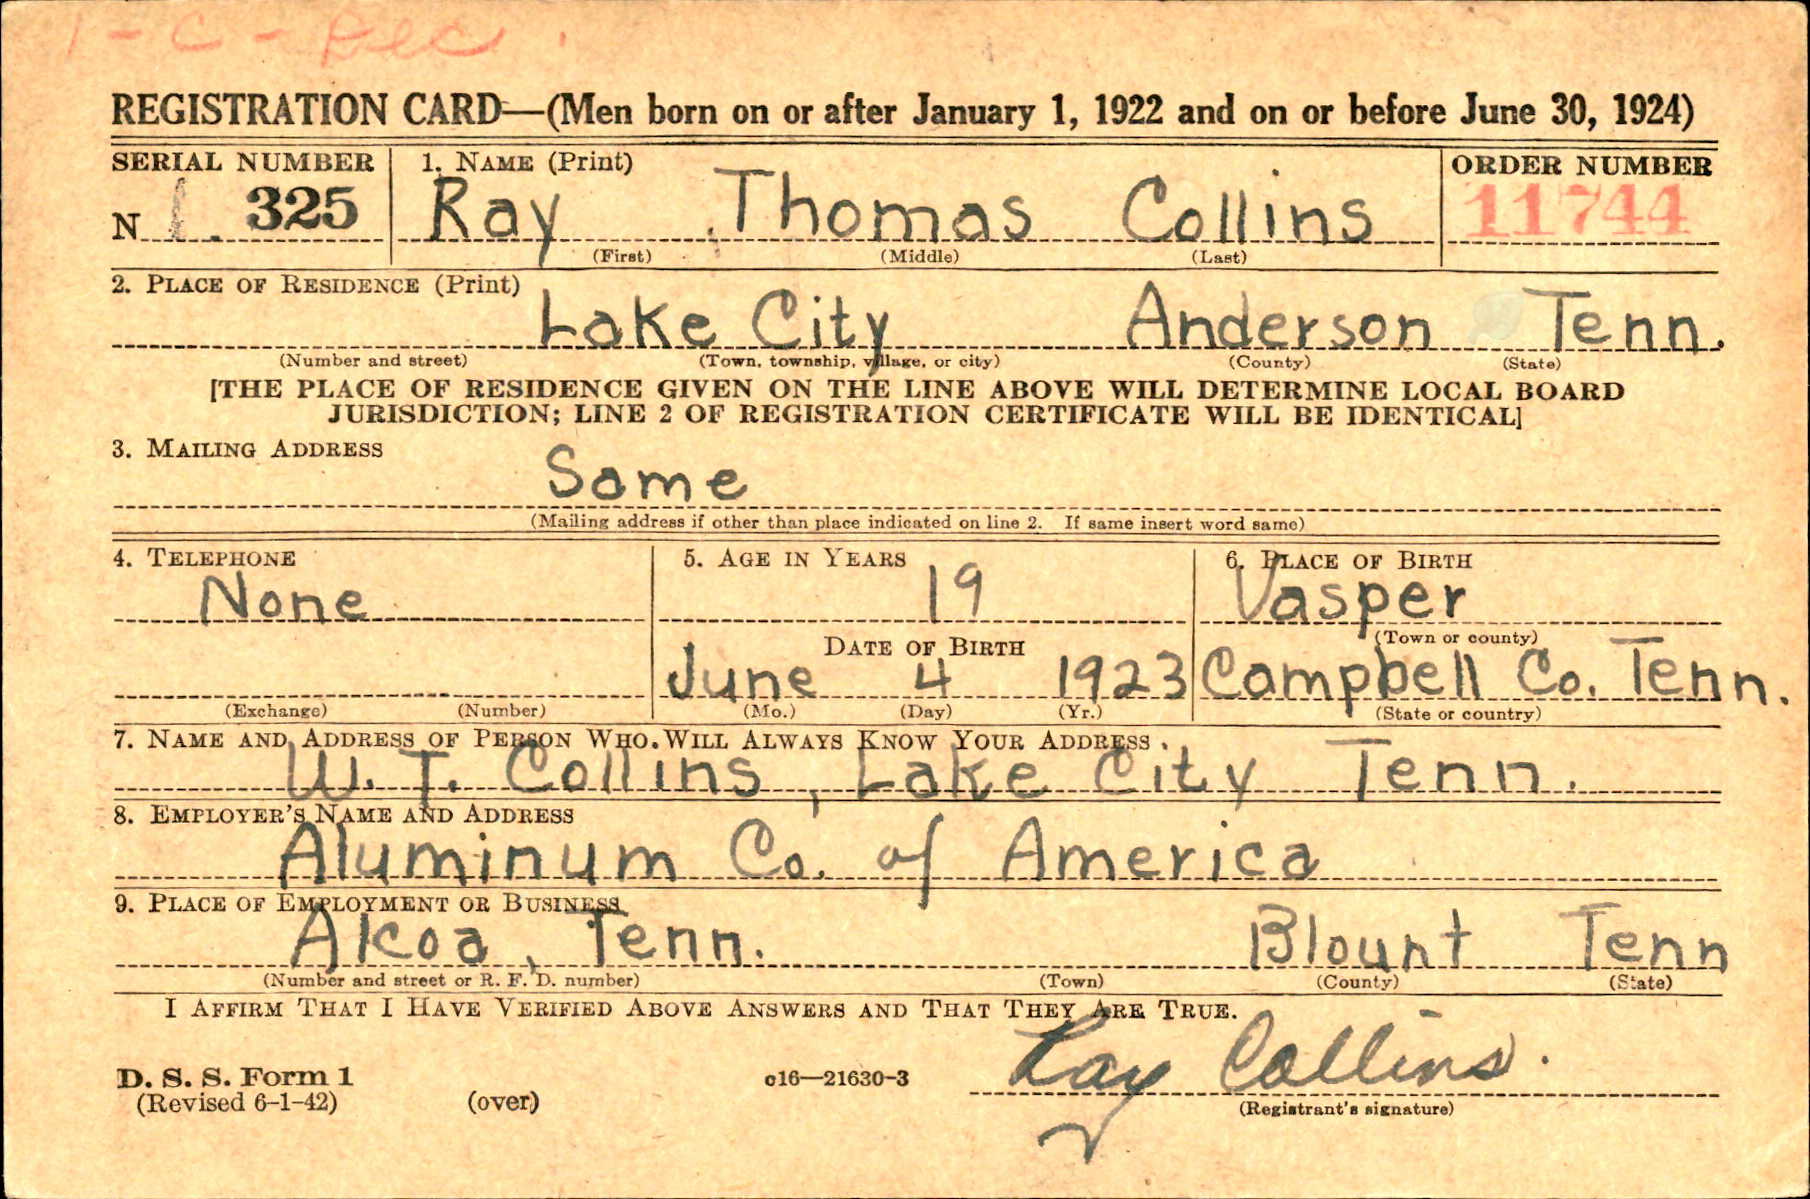 1-C-Dec.
REGISTRATION CARD—(Men born on or after January 1, 1922 and on or before June 30, 1924)
SERIAL NUMBER 1. NAME (Print) ORDER NUMBER
N 325 Ray Thomas Collins 11744
(First) (Middle) (Last)
2. PLACE OF RESIDENCE (Print)
Lake City Anderson Tenn.
(Number and street) (Town, township, village, or city) (County) (State)
[THE PLACE OF RESIDENCE GIVEN ON THE LINE ABOVE WILL DETERMINE LOCAL BOARD
JURISDICTION; LINE 2 OF REGISTRATION CERTIFICATE WILL BE IDENTICAL]
3. MAILING ADDRESS
Same
(Mailing address if other than place indicated on line 2. If same insert word same)
4. TELEPHONE 5. AGE IN YEARS 6. PLACE OF BIRTH
None 19 Vasper
DATE OF BIRTH (Town or county)
June 4 1923 Campbell Co. Tenn.
(Exchange) (Number) (Mo.) (Day) (Yr.) (State or country)
7. NAME AND ADDRESS OF PERSON WHO WILL ALWAYS KNOW YOUR ADDRESS
W. T. Collins, Lake City Tenn.
8. EMPLOYER'S NAME AND ADDRESS
Aluminum Co. of America
9. PLACE OF EMPLOYMENT OR BUSINESS
Alcoa, Tenn. Blount Tenn
(Number and street or R. F. D. number) (Town) (County) (State)
I AFFIRM THAT I HAVE VERIFIED ABOVE ANSWERS AND THAT THEY ARE TRUE.
Ray Collins.
D. S. S. Form 1 c16—21630-3
(Revised 6-1-42) (over) (Registrant's signature)